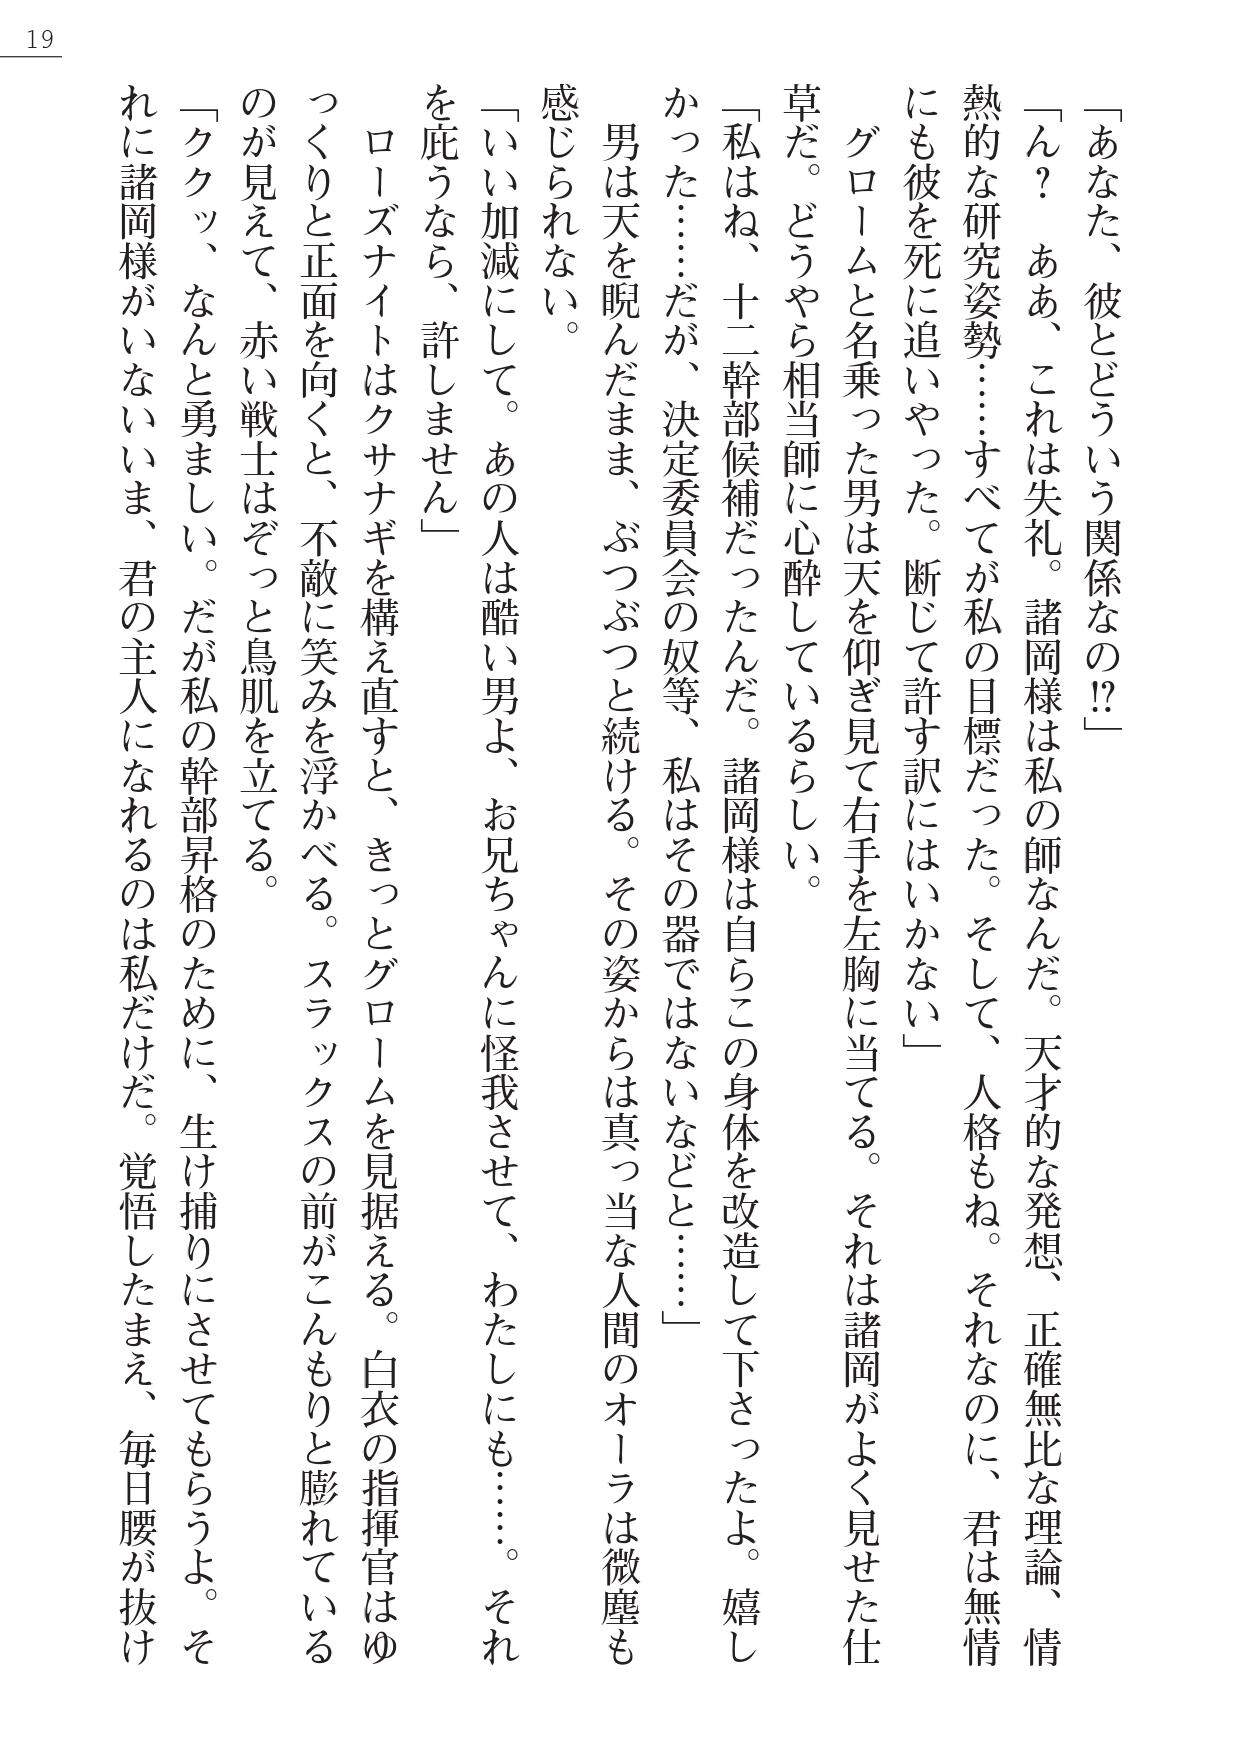 19
「あなた、彼とどういう関係なの!?」
「ん？　ああ、これは失礼。諸岡様は私の師なんだ。天才的な発想、正確無比な理論、情
熱的な研究姿勢……すべてが私の目標だった。そして、人格もね。それなのに、君は無情
にも彼を死に追いやった。断じて許す訳にはいかない」
　グロームと名乗った男は天を仰ぎ見て右手を左胸に当てる。それは諸岡がよく見せた仕
草だ。どうやら相当師に心酔しているらしい。
「私はね、十二幹部候補だったんだ。諸岡様は自らこの身体を改造して下さったよ。嬉し
かった……だが、決定委員会の奴等、私はその器ではないなどと……」
　男は天を睨んだまま、ぶつぶつと続ける。その姿からは真っ当な人間のオーラは微塵も
感じられない。
「いい加減にして。あの人は酷い男よ、お兄ちゃんに怪我させて、わたしにも……。それ
を庇うなら、許しません」
　ローズナイトはクサナギを構え直すと、きっとグロームを見据える。白衣の指揮官はゆ
っくりと正面を向くと、不敵に笑みを浮かべる。スラックスの前がこんもりと膨れている
のが見えて、赤い戦士はぞっと鳥肌を立てる。
「ククッ、なんと勇ましい。だが私の幹部昇格のために、生け捕りにさせてもらうよ。そ
れに諸岡様がいないいま、君の主人になれるのは私だけだ。覚悟したまえ、毎日腰が抜け